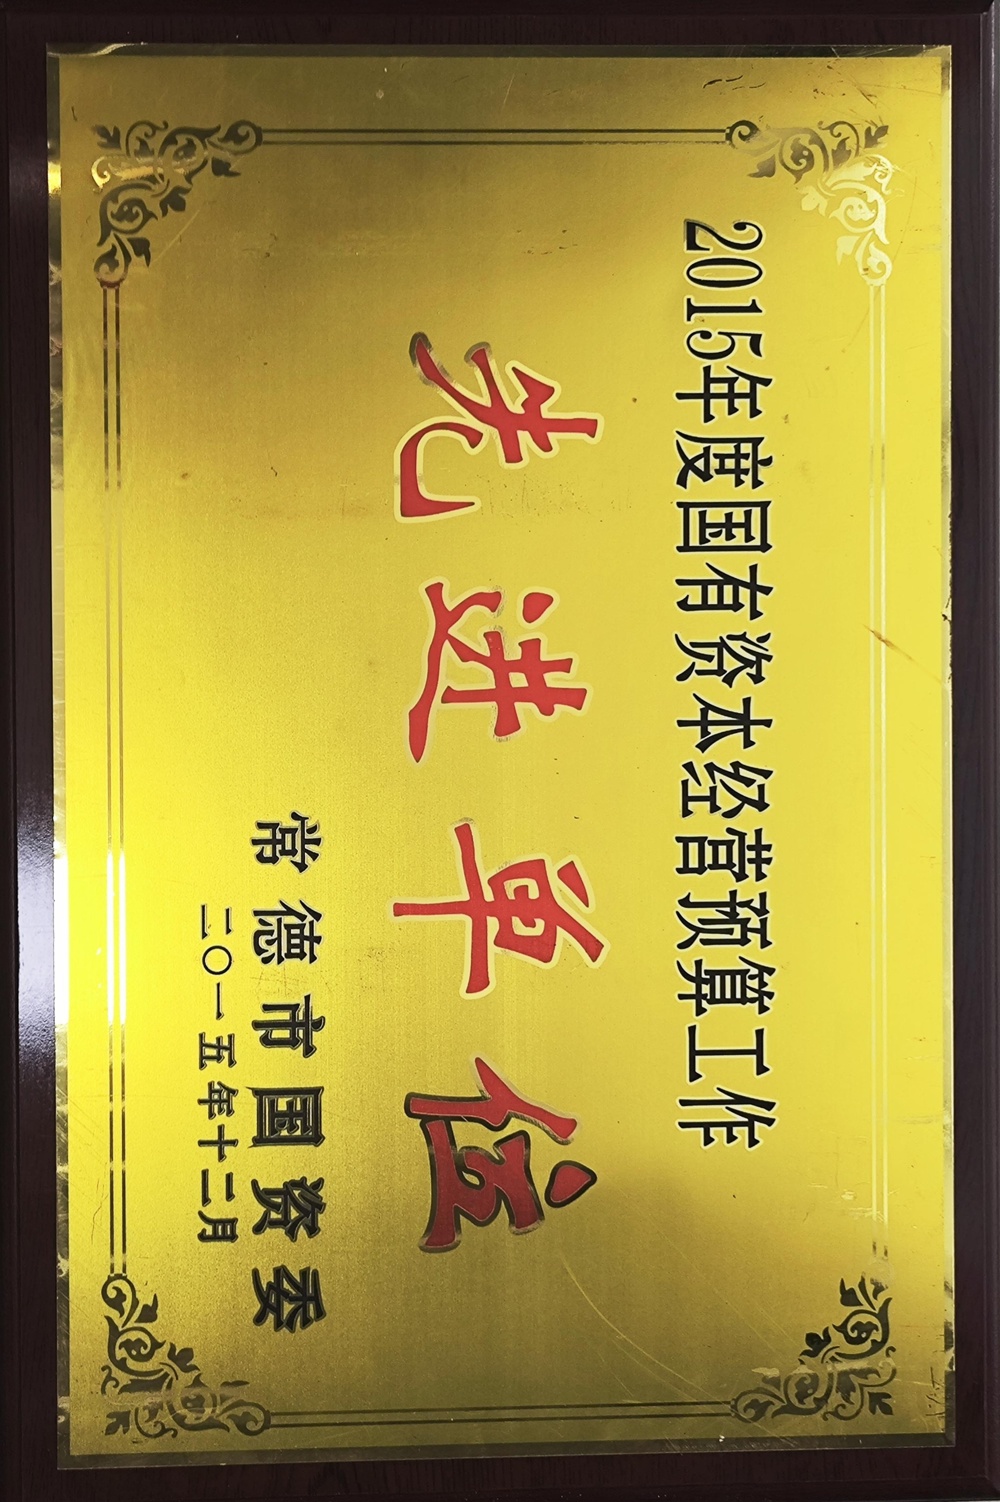 2015年度国有资本经营预算工作
先进单位
常德市国资委
二〇一五年十二月